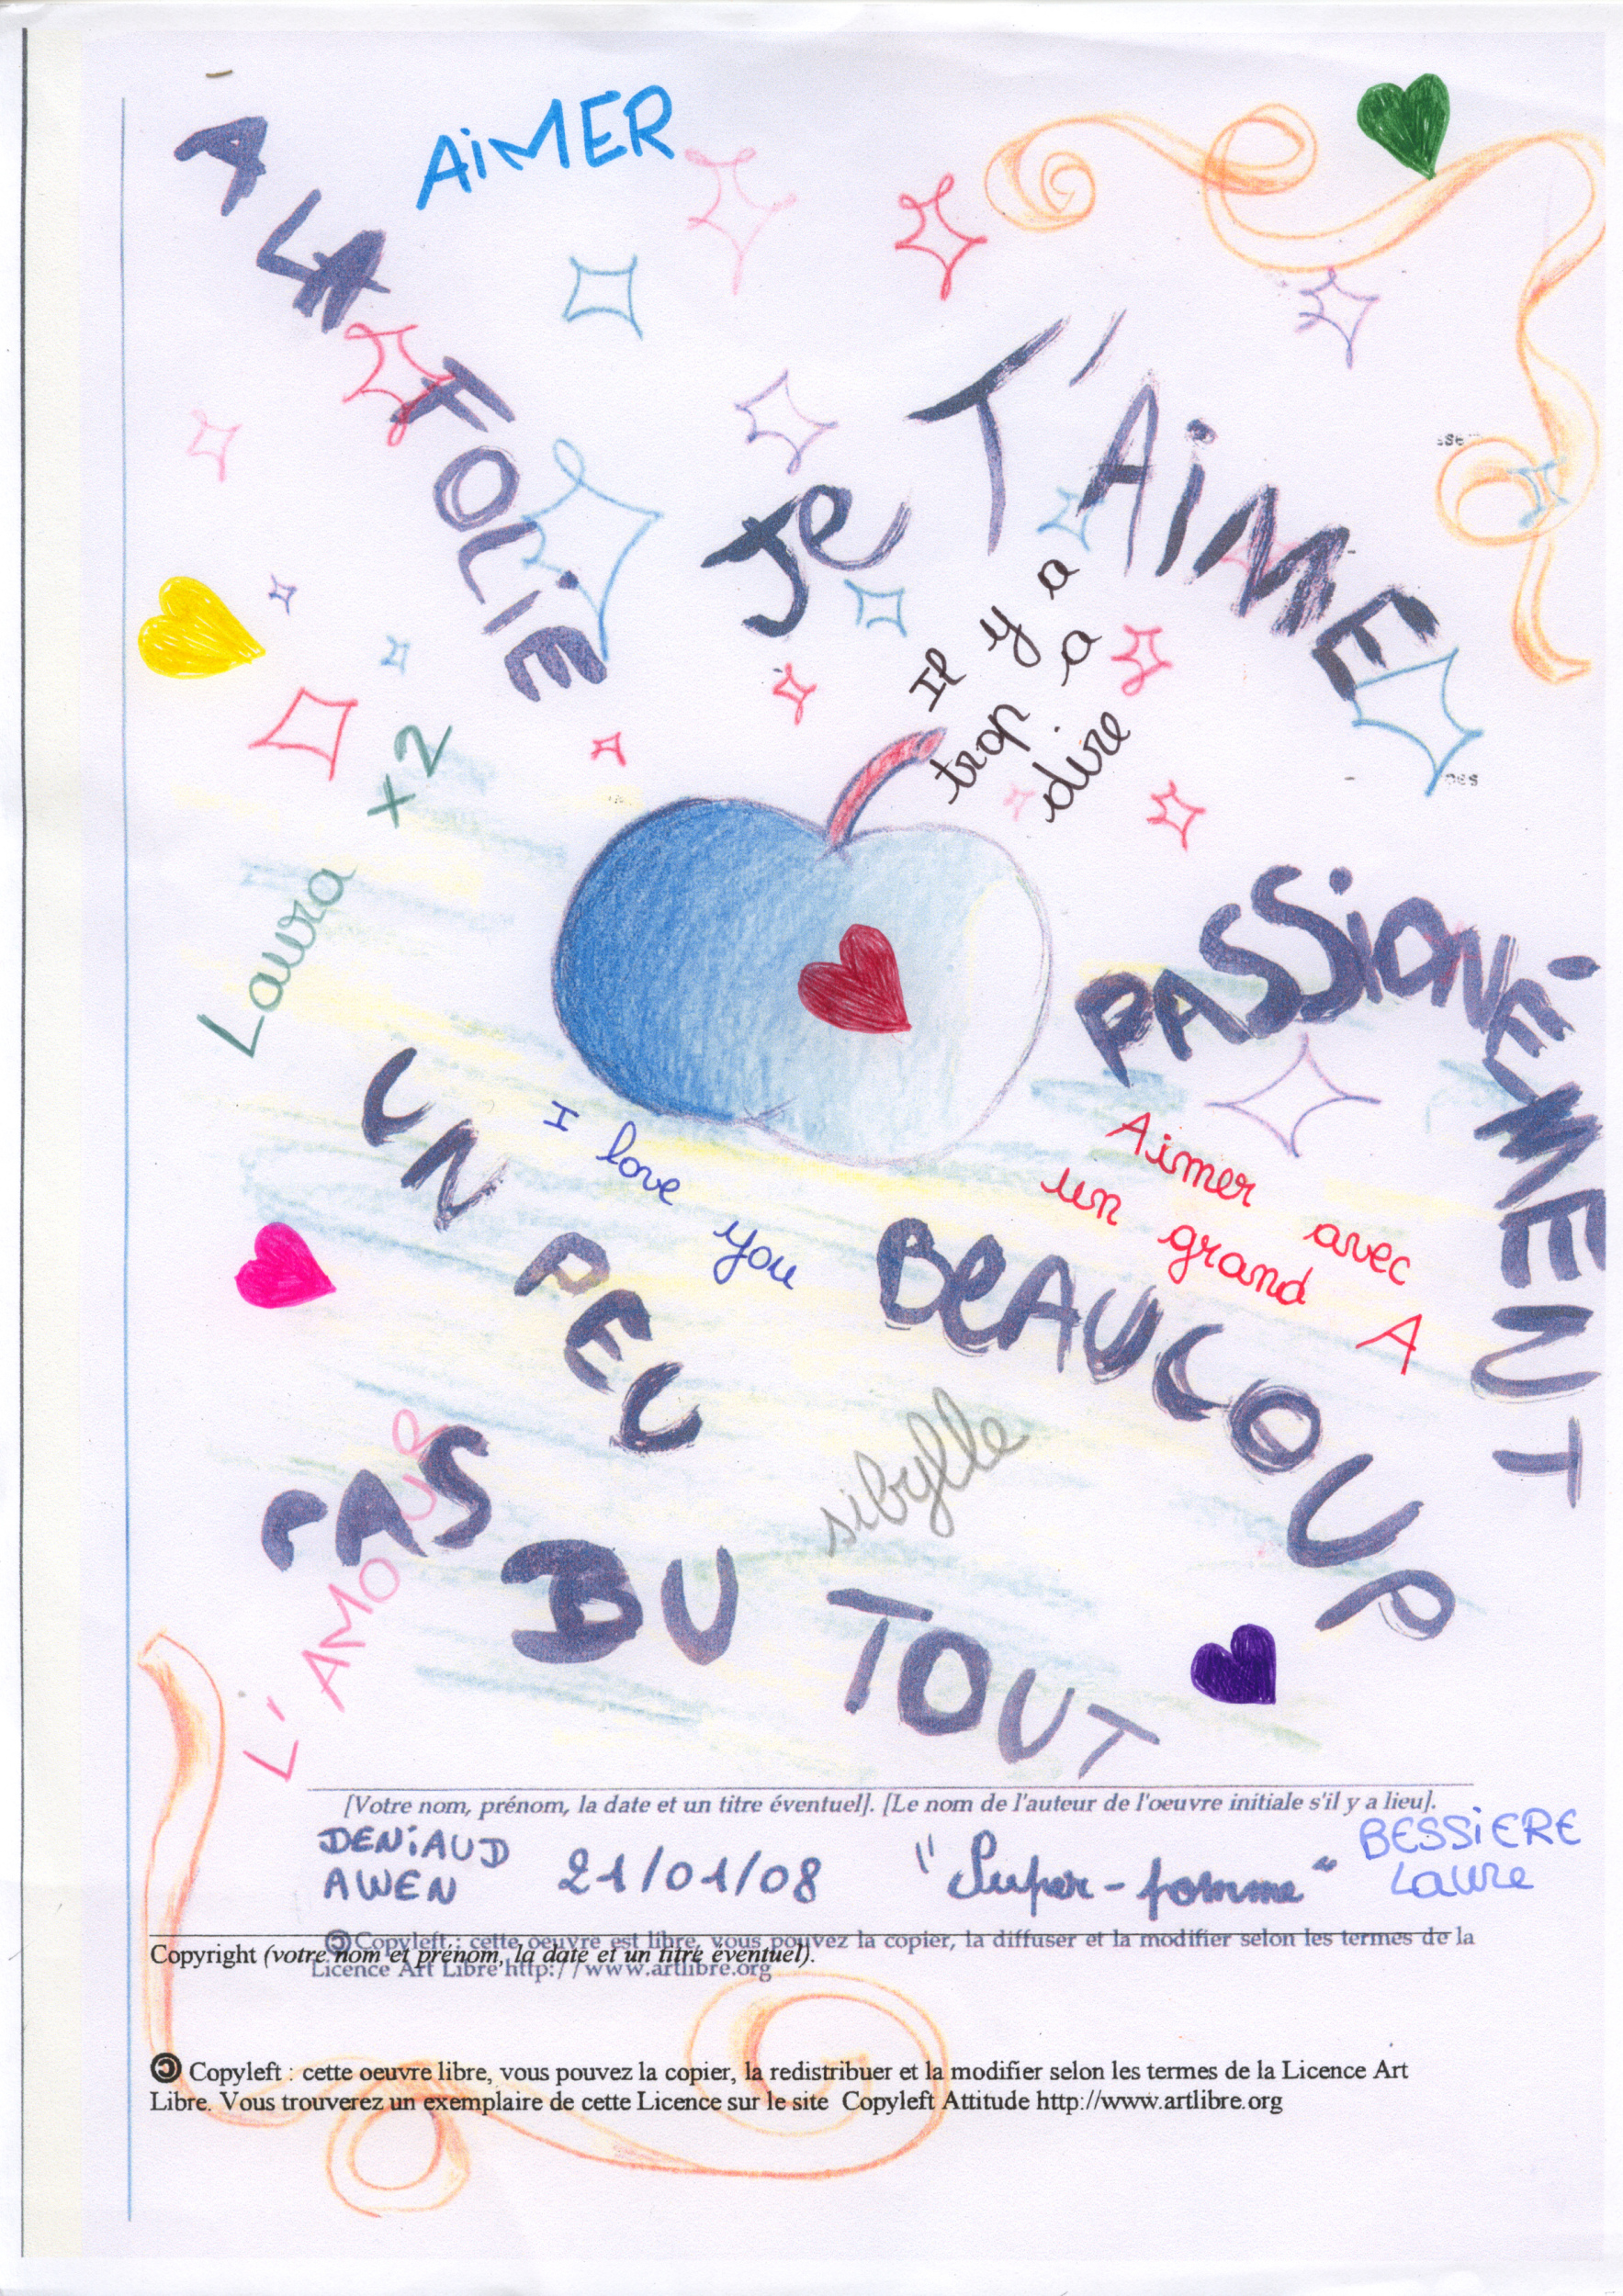 AiMER
A LA FOLiE
Je T'AiME
Il y a
trop a
dire
Laura x2
PASSiONÉMENT
I love you
Aimer avec
un grand A
UN PEU
BeAUCOUP
sibylle
PAS DU TOUT
L'AMOUR
[Votre nom, prénom, la date et un titre éventuel]. [Le nom de l'auteur de l'oeuvre initiale s'il y a lieu].
DENiAUD
AWEN
21/01/08
"Super-pomme"
BESSiERE
Laure
Copyleft : cette oeuvre est libre, vous pouvez la copier, la diffuser et la modifier selon les termes de la
Licence Art Libre http://www.artlibre.org
Copyright (votre nom et prénom, la date et un titre éventuel).
Copyleft : cette oeuvre libre, vous pouvez la copier, la redistribuer et la modifier selon les termes de la Licence Art
Libre. Vous trouverez un exemplaire de cette Licence sur le site Copyleft Attitude http://www.artlibre.org